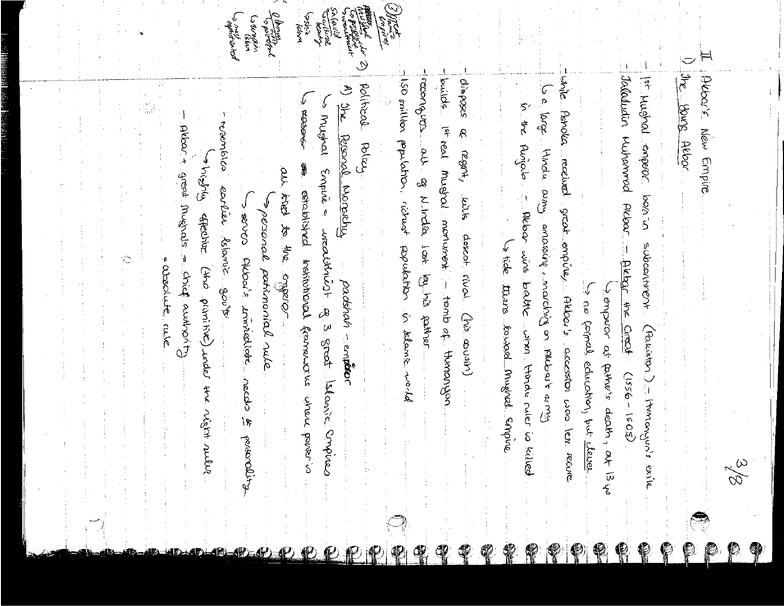 3/8
II Akbar's New Empire
1) The Young Akbar
- 1st Mughal emperor born in subcontinent (Pakistan) - Humanyun's exile
- Jaladudin Muhammad Akbar - Akbar the Great (1556-1605)
↳ emperor at father's death, at 13 yo
↳ no formal education, but clever
- while Ashoka received great empire, Akbar's accession was less secure
↳ a large Hindu army amassing, marching on Akbar's army
in the Punjab - Akbar wins battle when Hindu ruler is killed
↳ tide turns toward Mughal Empire
- disposes of regent, wife doesnt rival (his cousin)
- builds 1st real Mughal monument - tomb of Humanyun
- reconquers all of N. India lost by his father
- 150 million population, richest population in Islamic world
2) Political Policy
A) The Personal Monarchy padshah - emperor
↳ Mughal Empire = wealthiest of 3 great Islamic Empires
↳ established institutional framework where power is
all tied to the emperor
↳ personal patrimonial rule
↳ serves Akbar's immediate needs & personality
- resembles earlier Islamic gov'ts
↳ highly effective (tho primitive) under the right ruler
- Akbar + great Mughals = chief authority
= absolute rule